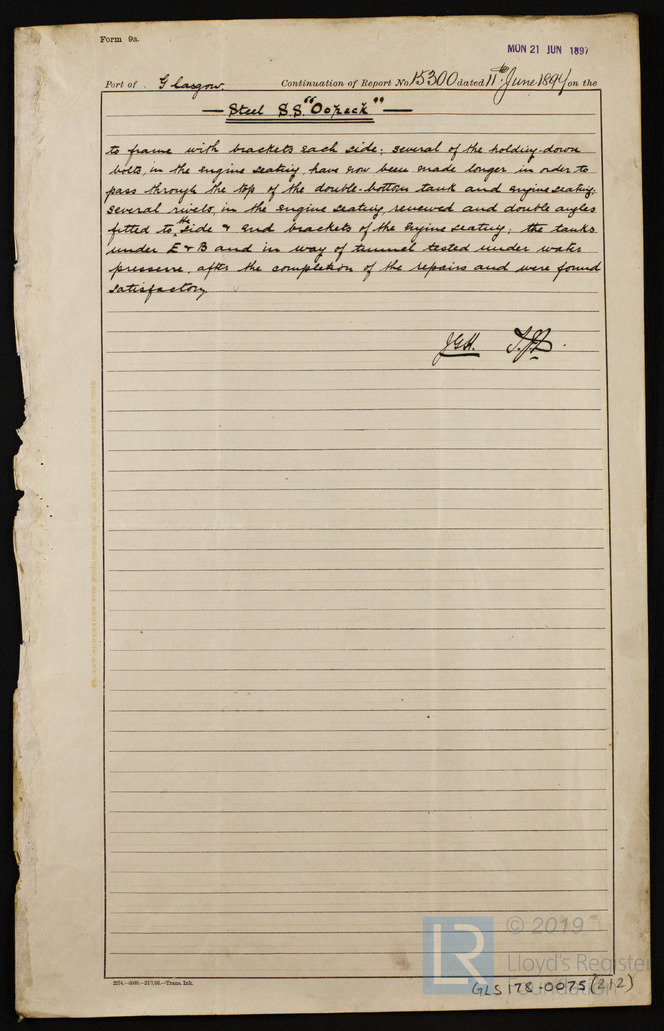 Form 9a.
MON 21 JUN 1897
Port of Glasgow. Continuation of Report No. 15300 dated 11th June 1897 on the
— Steel S.S. "Oopack" —
to frame with brackets each side; several of the holding-down
bolts, in the engine seating, have now been made longer in order to
pass through the top of the double-bottom tank and engine seating.
several rivets, in the engine seating, renewed and double angles
fitted to the side & end brackets of the engine seating; the tanks
under E & B and in way of tunnel tested under water
pressure, after the completion of the repairs and were found
satisfactory
J.G.H. T.J.D.
2274.—5000.—23/7/96.—Trans. Ink.
LR © 2019
Lloyd's Register
Foundation
GLS178-0075(2/2)